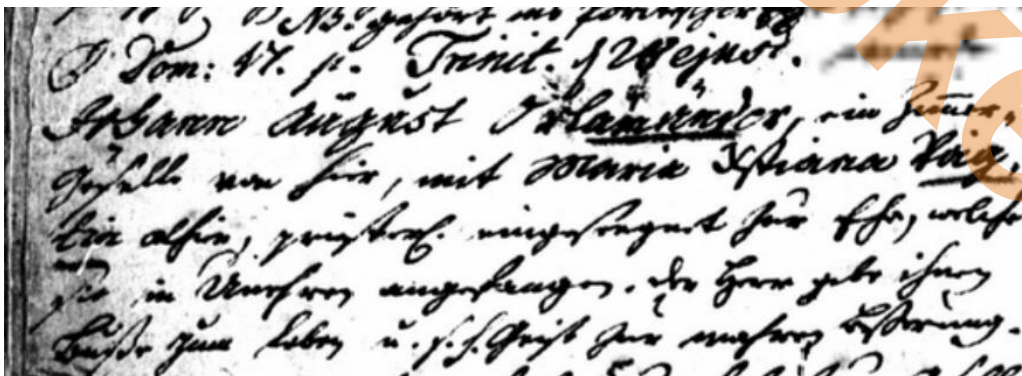 NB. gehört ins
Dom: 17. p. Trinit. d 28 ejusd.
Johann August Orlamünder, ein Zimmer-
geselle von hier, mit Maria Xstiana Voig-
tin alhier, priesterl. eingesegnet zur Ehe, welche
sie in Unehren angefangen. der Herr gebe ihnen
Buße zum Leben u. s. h. Geist zur wahren Beßerung.